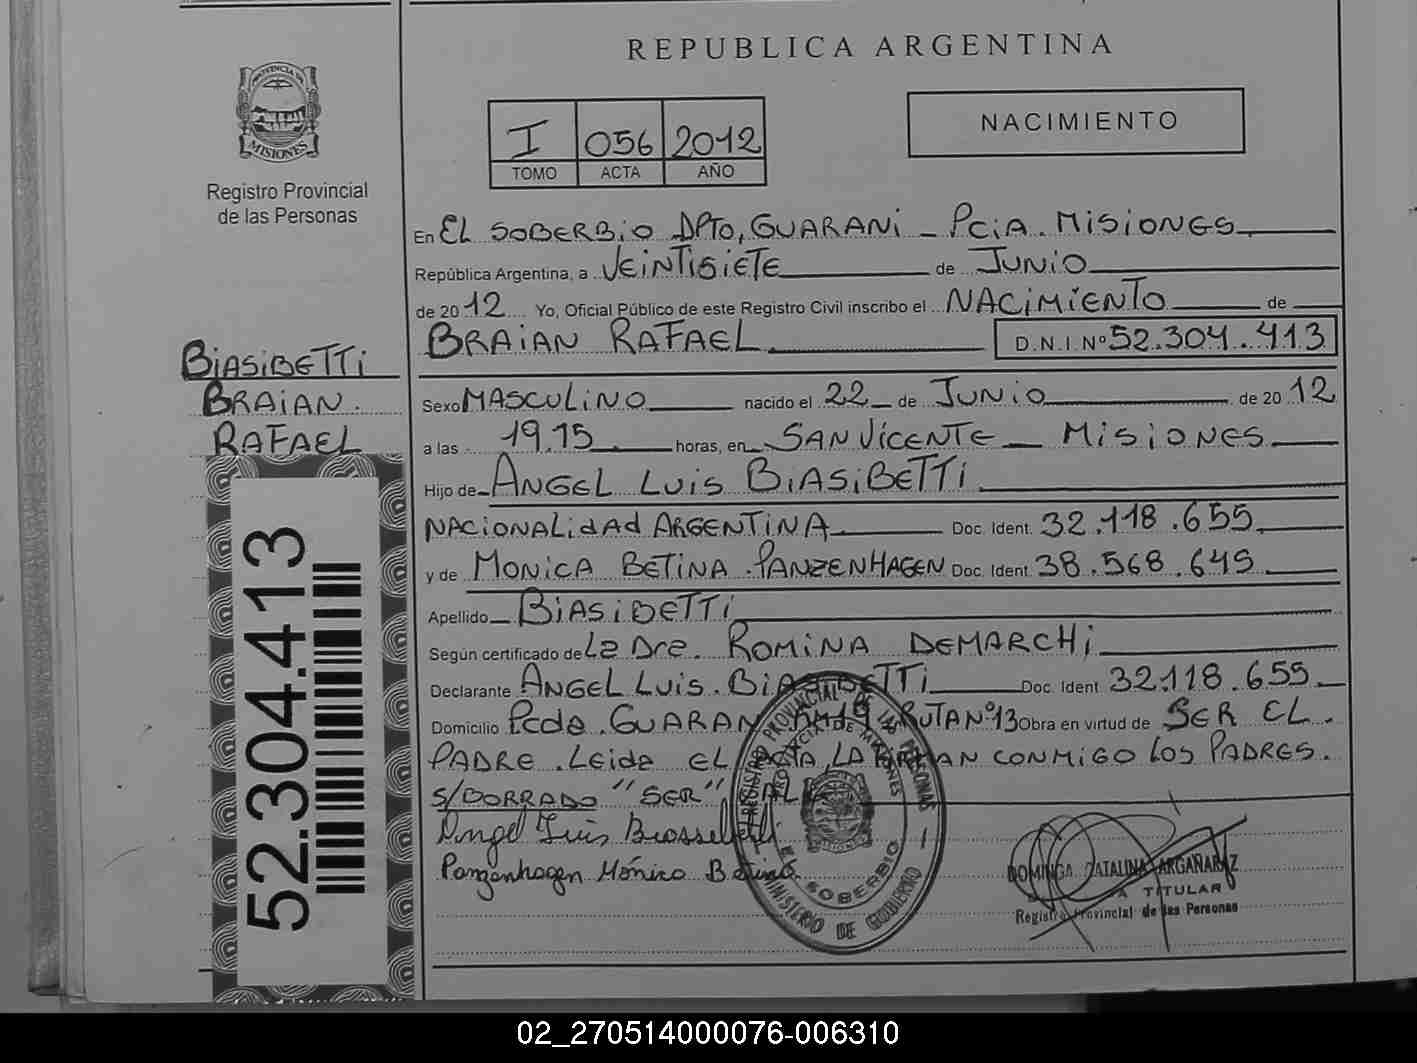 REPUBLICA ARGENTINA
PROVINCIA DE
MISIONES
Registro Provincial
de las Personas
I 056 2012
TOMO ACTA AÑO
NACIMIENTO
En EL SOBERBIO DPTO, GUARANI - PCIA. MISIONES
República Argentina, a VEINTISIETE de JUNIO
de 2012 Yo, Oficial Público de este Registro Civil inscribo el NACIMIENTO de
BRAIAN RAFAEL D.N.I. Nº 52.304.413
BIASIBETTI
BRAIAN
RAFAEL
Sexo MASCULINO nacido el 22 de JUNIO de 2012
a las 19,15 horas, en SAN VICENTE - MISIONES
Hijo de ANGEL LUIS BIASIBETTI
NACIONALIDAD ARGENTINA Doc. Ident. 32.118.655
y de MONICA BETINA PANZENHAGEN Doc. Ident. 38.568.649
Apellido BIASIBETTI
Según certificado de La Dra. ROMINA DEMARCHI
Declarante ANGEL LUIS BIASIBETTI Doc. Ident 32.118.655
Domicilio Pcda. GUARANI KM19 RUTA Nº13 Obra en virtud de SER EL
PADRE. Leida EL ACTA, LA FIRMAN CONMIGO LOS PADRES.
S/BORRADO "SER" VALE
Angel Luis Biassibetti
Panzenhagen Mónica Betina
52.304.413
REGISTRO PROVINCIAL DE LAS PERSONAS
PROVINCIA DE MISIONES
EL SOBERBIO
MINISTERIO DE GOBIERNO
DOMINGA CATALINA ARGAÑARAZ
TITULAR
Registro Provincial de las Personas
02_270514000076-006310